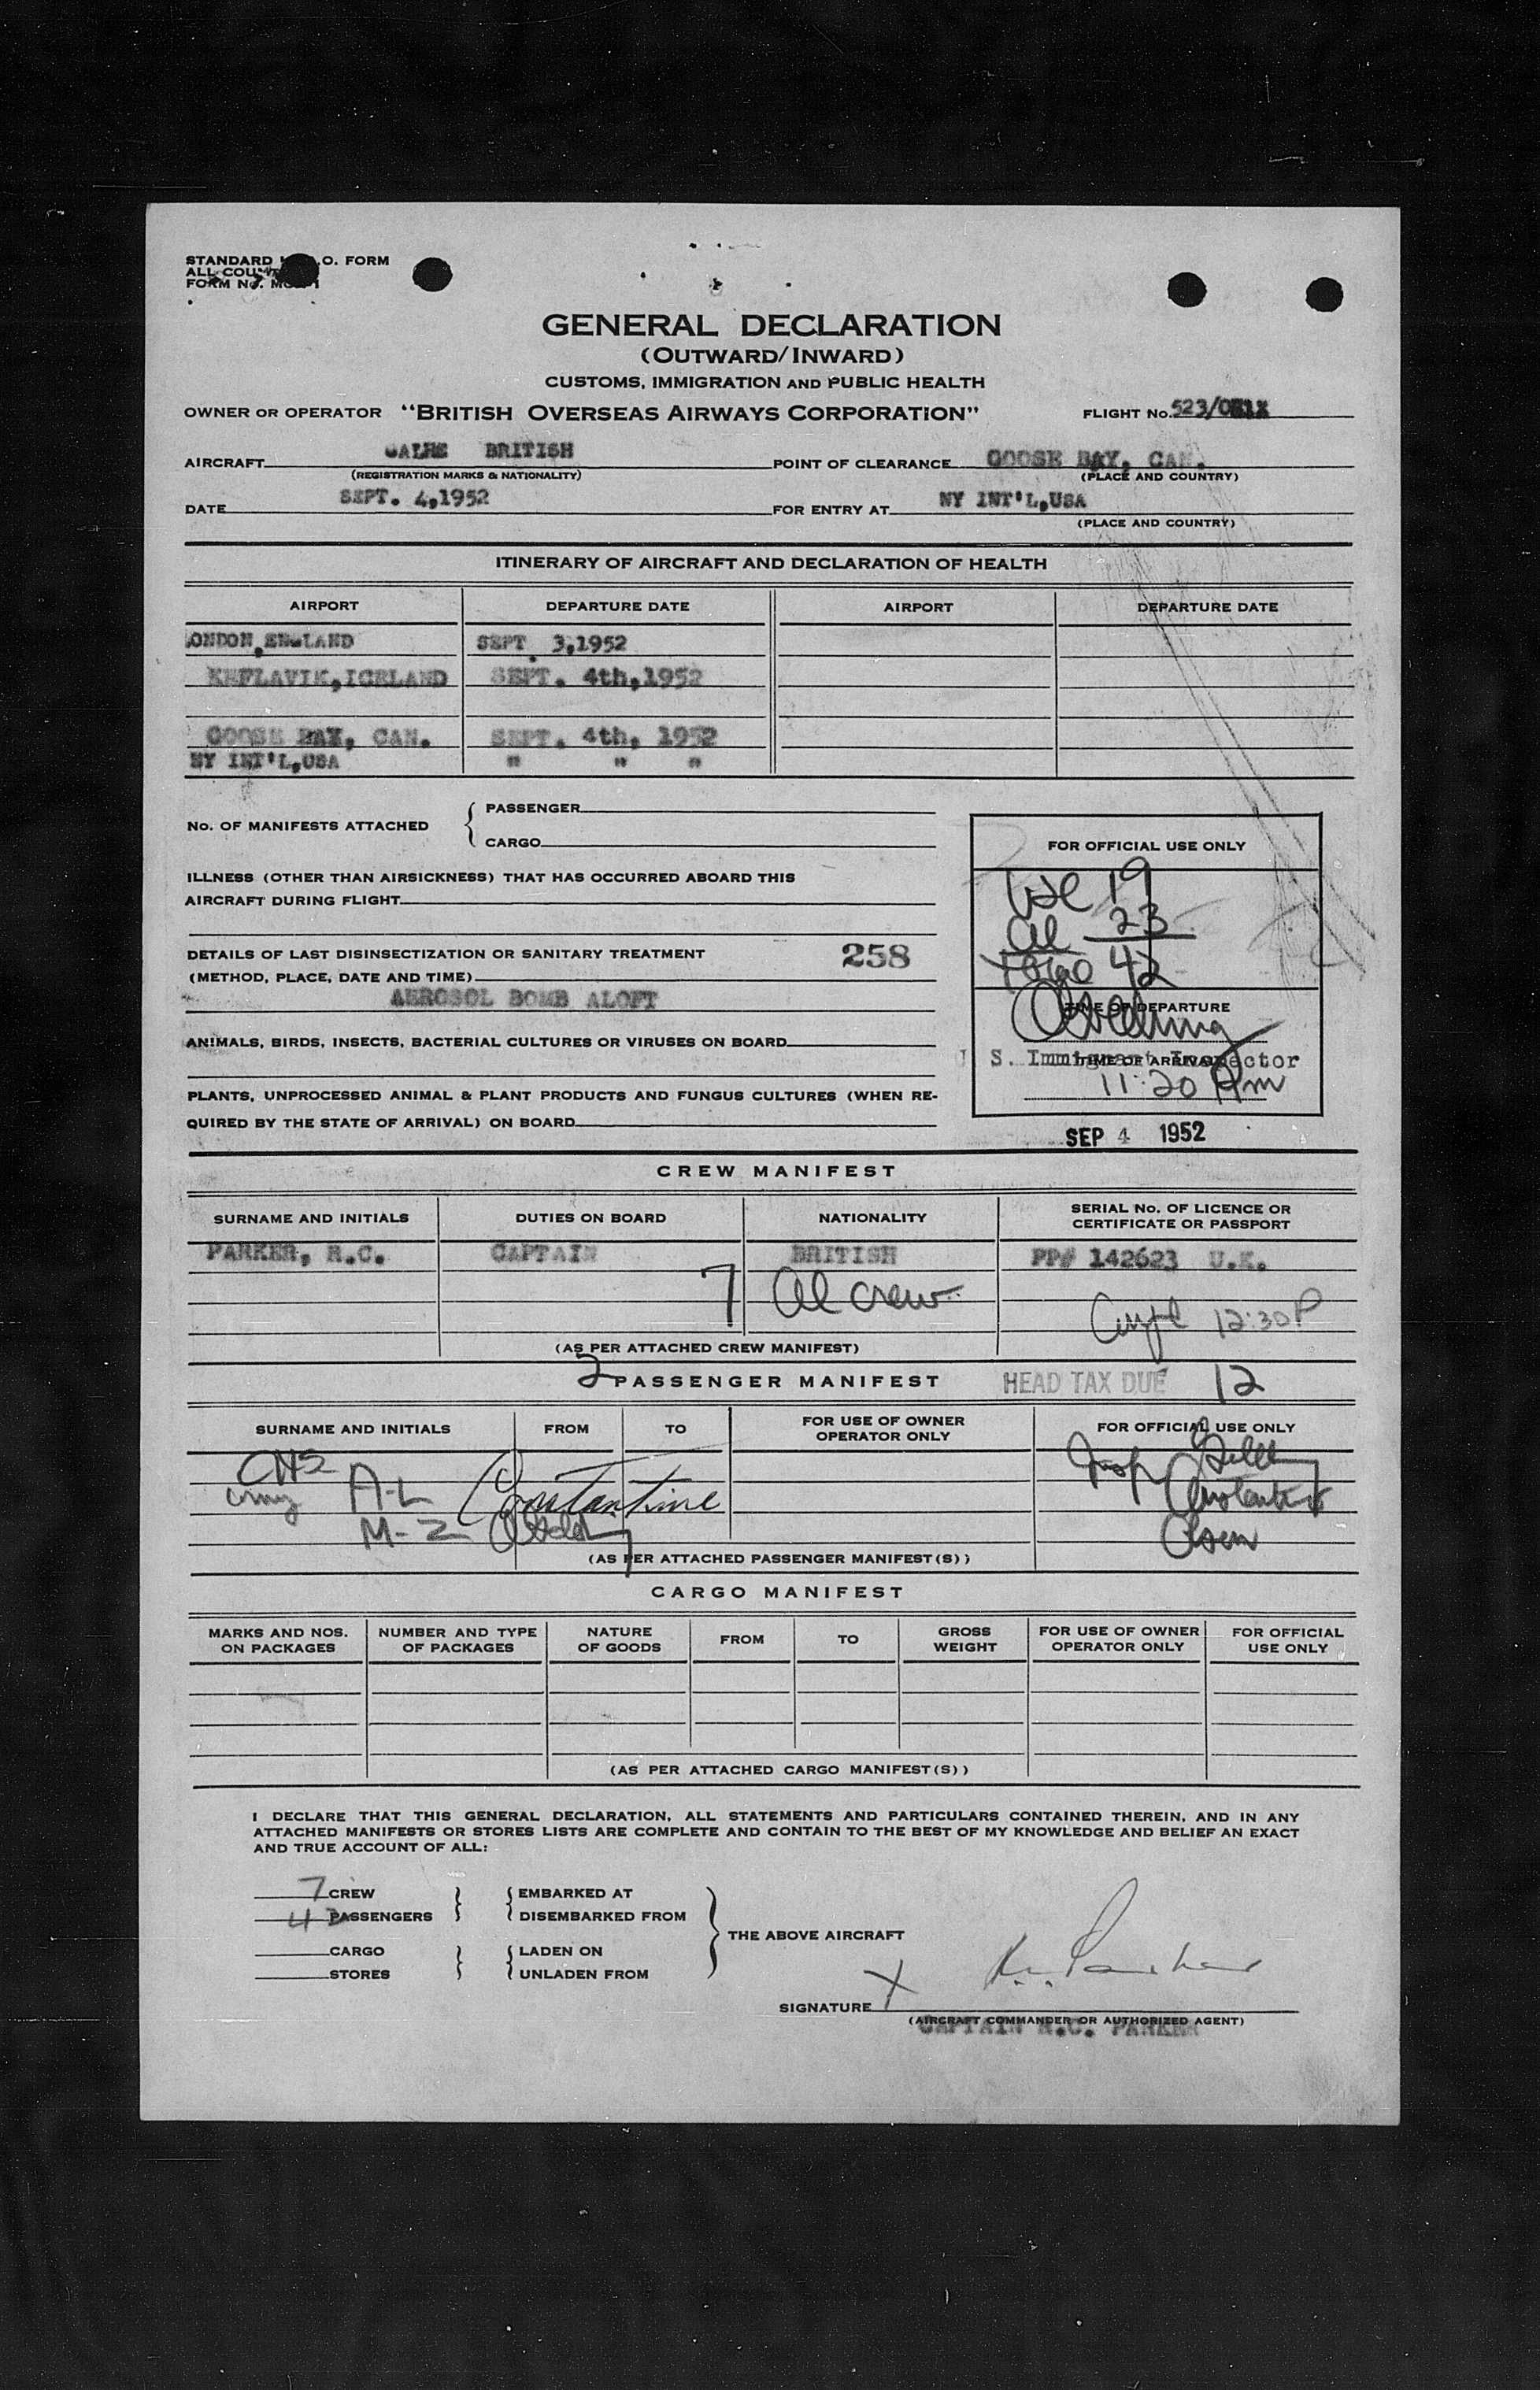 STANDARD O. FORM
ALL
FORM No.
GENERAL DECLARATION
(OUTWARD/INWARD)
CUSTOMS, IMMIGRATION AND PUBLIC HEALTH
OWNER OR OPERATOR "BRITISH OVERSEAS AIRWAYS CORPORATION" FLIGHT No. 523/
AIRCRAFT GALHE BRITISH POINT OF CLEARANCE GOOSE BAY, CAN.
(REGISTRATION MARKS & NATIONALITY) (PLACE AND COUNTRY)
DATE SEPT. 4,1952 FOR ENTRY AT NY INT'L,USA
(PLACE AND COUNTRY)
ITINERARY OF AIRCRAFT AND DECLARATION OF HEALTH
AIRPORT DEPARTURE DATE AIRPORT DEPARTURE DATE
ONDON,ENGLAND SEPT. 3,1952
KEFLAVIK,ICELAND SEPT. 4th,1952
GOOSE BAY, CAN. SEPT. 4th, 1952
NY INT'L,USA " " "
No. OF MANIFESTS ATTACHED { PASSENGER
CARGO
FOR OFFICIAL USE ONLY
ILLNESS (OTHER THAN AIRSICKNESS) THAT HAS OCCURRED ABOARD THIS
AIRCRAFT DURING FLIGHT
19
al 23
42
DETAILS OF LAST DISINSECTIZATION OR SANITARY TREATMENT 258
(METHOD, PLACE, DATE AND TIME)
AEROSOL BOMB ALOFT
TIME OF DEPARTURE
ANIMALS, BIRDS, INSECTS, BACTERIAL CULTURES OR VIRUSES ON BOARD
S. Immigrant Inspector
TIME OF ARRIVAL
11:20 Am
PLANTS, UNPROCESSED ANIMAL & PLANT PRODUCTS AND FUNGUS CULTURES (WHEN RE-
QUIRED BY THE STATE OF ARRIVAL) ON BOARD
SEP 4 1952
CREW MANIFEST
SURNAME AND INITIALS DUTIES ON BOARD NATIONALITY SERIAL No. OF LICENCE OR
CERTIFICATE OR PASSPORT
PARKER, R.C. CAPTAIN BRITISH PP# 142623 U.K.
7 al crew
12:30P
(AS PER ATTACHED CREW MANIFEST)
2 PASSENGER MANIFEST HEAD TAX DUE 12
SURNAME AND INITIALS FROM TO FOR USE OF OWNER
OPERATOR ONLY FOR OFFICIAL USE ONLY
A-L Constantine
M-Z
Insp
Olsen
(AS PER ATTACHED PASSENGER MANIFEST(S))
CARGO MANIFEST
MARKS AND NOS.
ON PACKAGES NUMBER AND TYPE
OF PACKAGES NATURE
OF GOODS FROM TO GROSS
WEIGHT FOR USE OF OWNER
OPERATOR ONLY FOR OFFICIAL
USE ONLY
(AS PER ATTACHED CARGO MANIFEST(S))
I DECLARE THAT THIS GENERAL DECLARATION, ALL STATEMENTS AND PARTICULARS CONTAINED THEREIN, AND IN ANY
ATTACHED MANIFESTS OR STORES LISTS ARE COMPLETE AND CONTAIN TO THE BEST OF MY KNOWLEDGE AND BELIEF AN EXACT
AND TRUE ACCOUNT OF ALL:
7 CREW EMBARKED AT
42 PASSENGERS DISEMBARKED FROM
THE ABOVE AIRCRAFT
CARGO LADEN ON
STORES UNLADEN FROM
SIGNATURE X R.C. Parker
(AIRCRAFT COMMANDER OR AUTHORIZED AGENT)
CAPTAIN R.C. PARKER